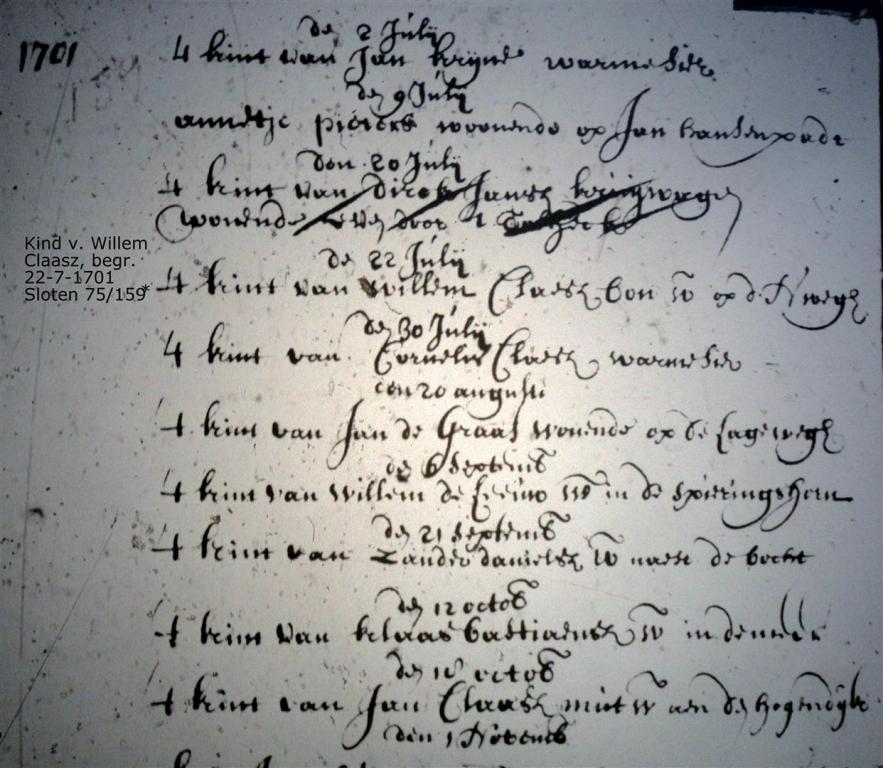 1701
de 2 Julij
t kint van Jan krijns warmoesier
de 9 Julij
annetje pieters woonende op Jan hansenpadt
den 20 Julij
t kint van Dirck Jansz kruijwagen
wonende door t
de 22 Julij
t kint van willem Claesz bon w op d N wegh
de 30 Julij
t kint van Cornelis Claesz warmoesier
den 20 augusti
t kint van Jan de Graaf wonende op de Lagewegh
de 6 Septemb
t kint van willem de Leeuw w in de spieringshorn
de 21 Septemb
t kint van Zander danielsz w naest de bocht
de 12 octob
t kint van klaas bastiaensz w in de
de 18 octob
t kint van Jan Claasz w aen de hogendijk
den 1 Novemb
Kind v. Willem
Claasz, begr.
22-7-1701
Sloten 75/159*